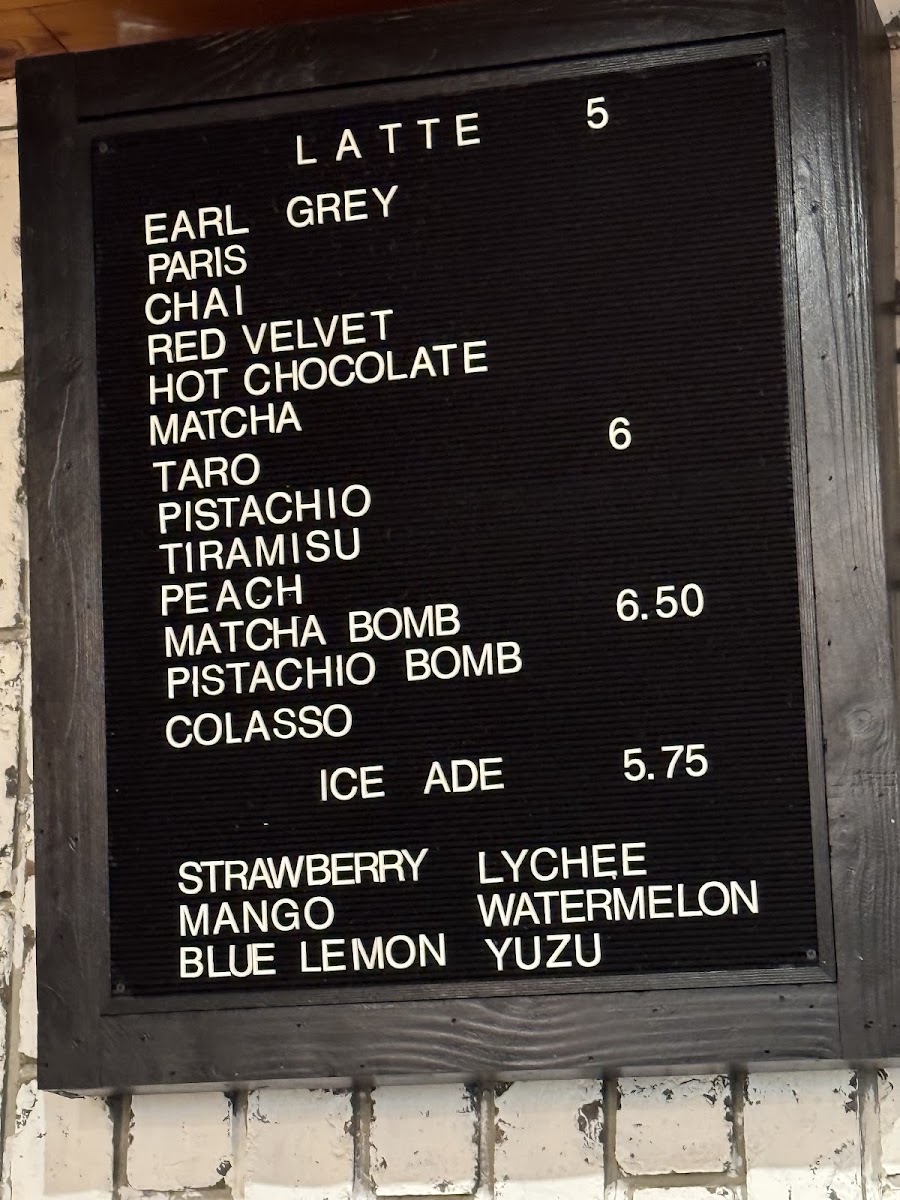 LATTE 5
EARL GREY
PARIS
CHAI
RED VELVET
HOT CHOCOLATE
MATCHA
TARO 6
PISTACHIO
TIRAMISU
PEACH
MATCHA BOMB 6.50
PISTACHIO BOMB
COLASSO
ICE ADE 5.75
STRAWBERRY LYCHEE
MANGO WATERMELON
BLUE LEMON YUZU